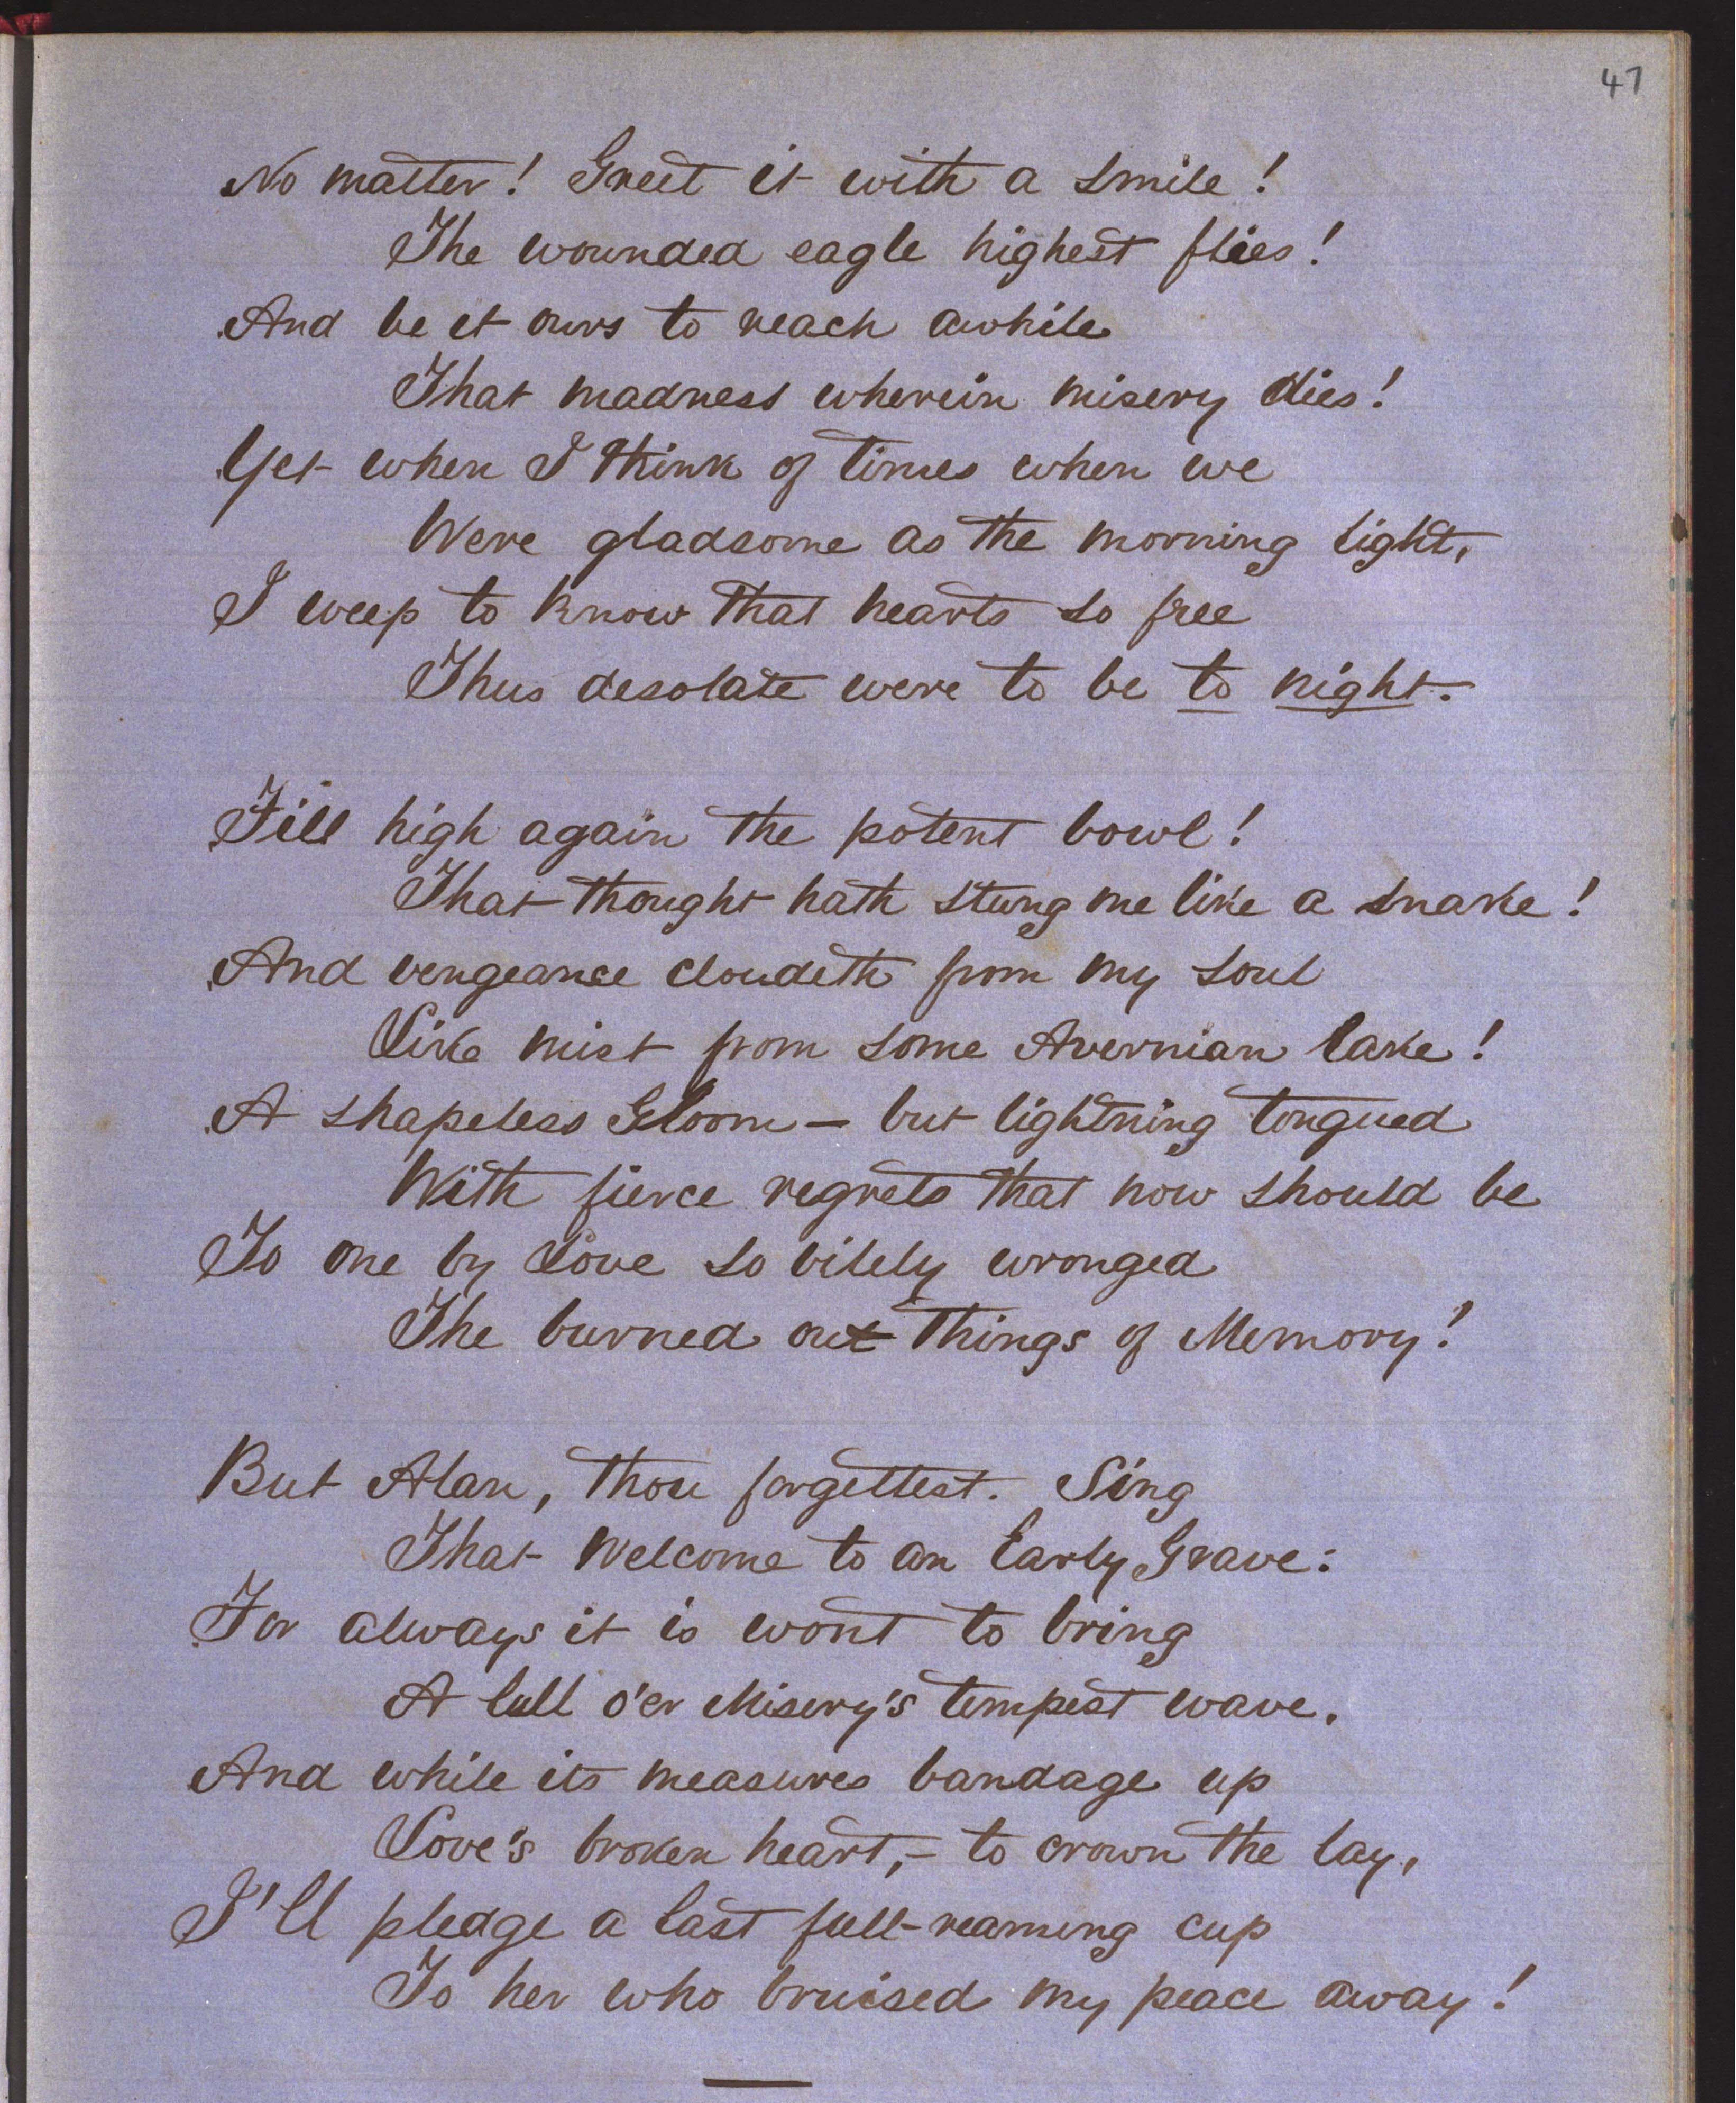 47
No matter! Greet it with a smile!
The wounded eagle highest flies!
And be it ours to reach awhile
That madness wherein misery dies!
Yet when I think of times when we
Were gladsome as the morning light,
I weep to know that hearts so free
Thus desolate were to be to night.
Fill high again the potent bowl!
That thought hath stung me like a snake!
And vengeance cloudeth from my soul
Like mist from some Avernian lake!
A shapeless Gloom — but lightning tongued
With fierce regrets that now should be
To one by Love so vilely wronged
The burned out things of Memory!
But Alan, thou forgettest. Sing
That Welcome to an Early Grave:
For always it is wont to bring
A lull o'er Misery's tempest wave.
And while its measures bandage up
Love's broken heart,– to crown the lay,
I'll pledge a last full-reaming cup
To her who bruised my peace away!